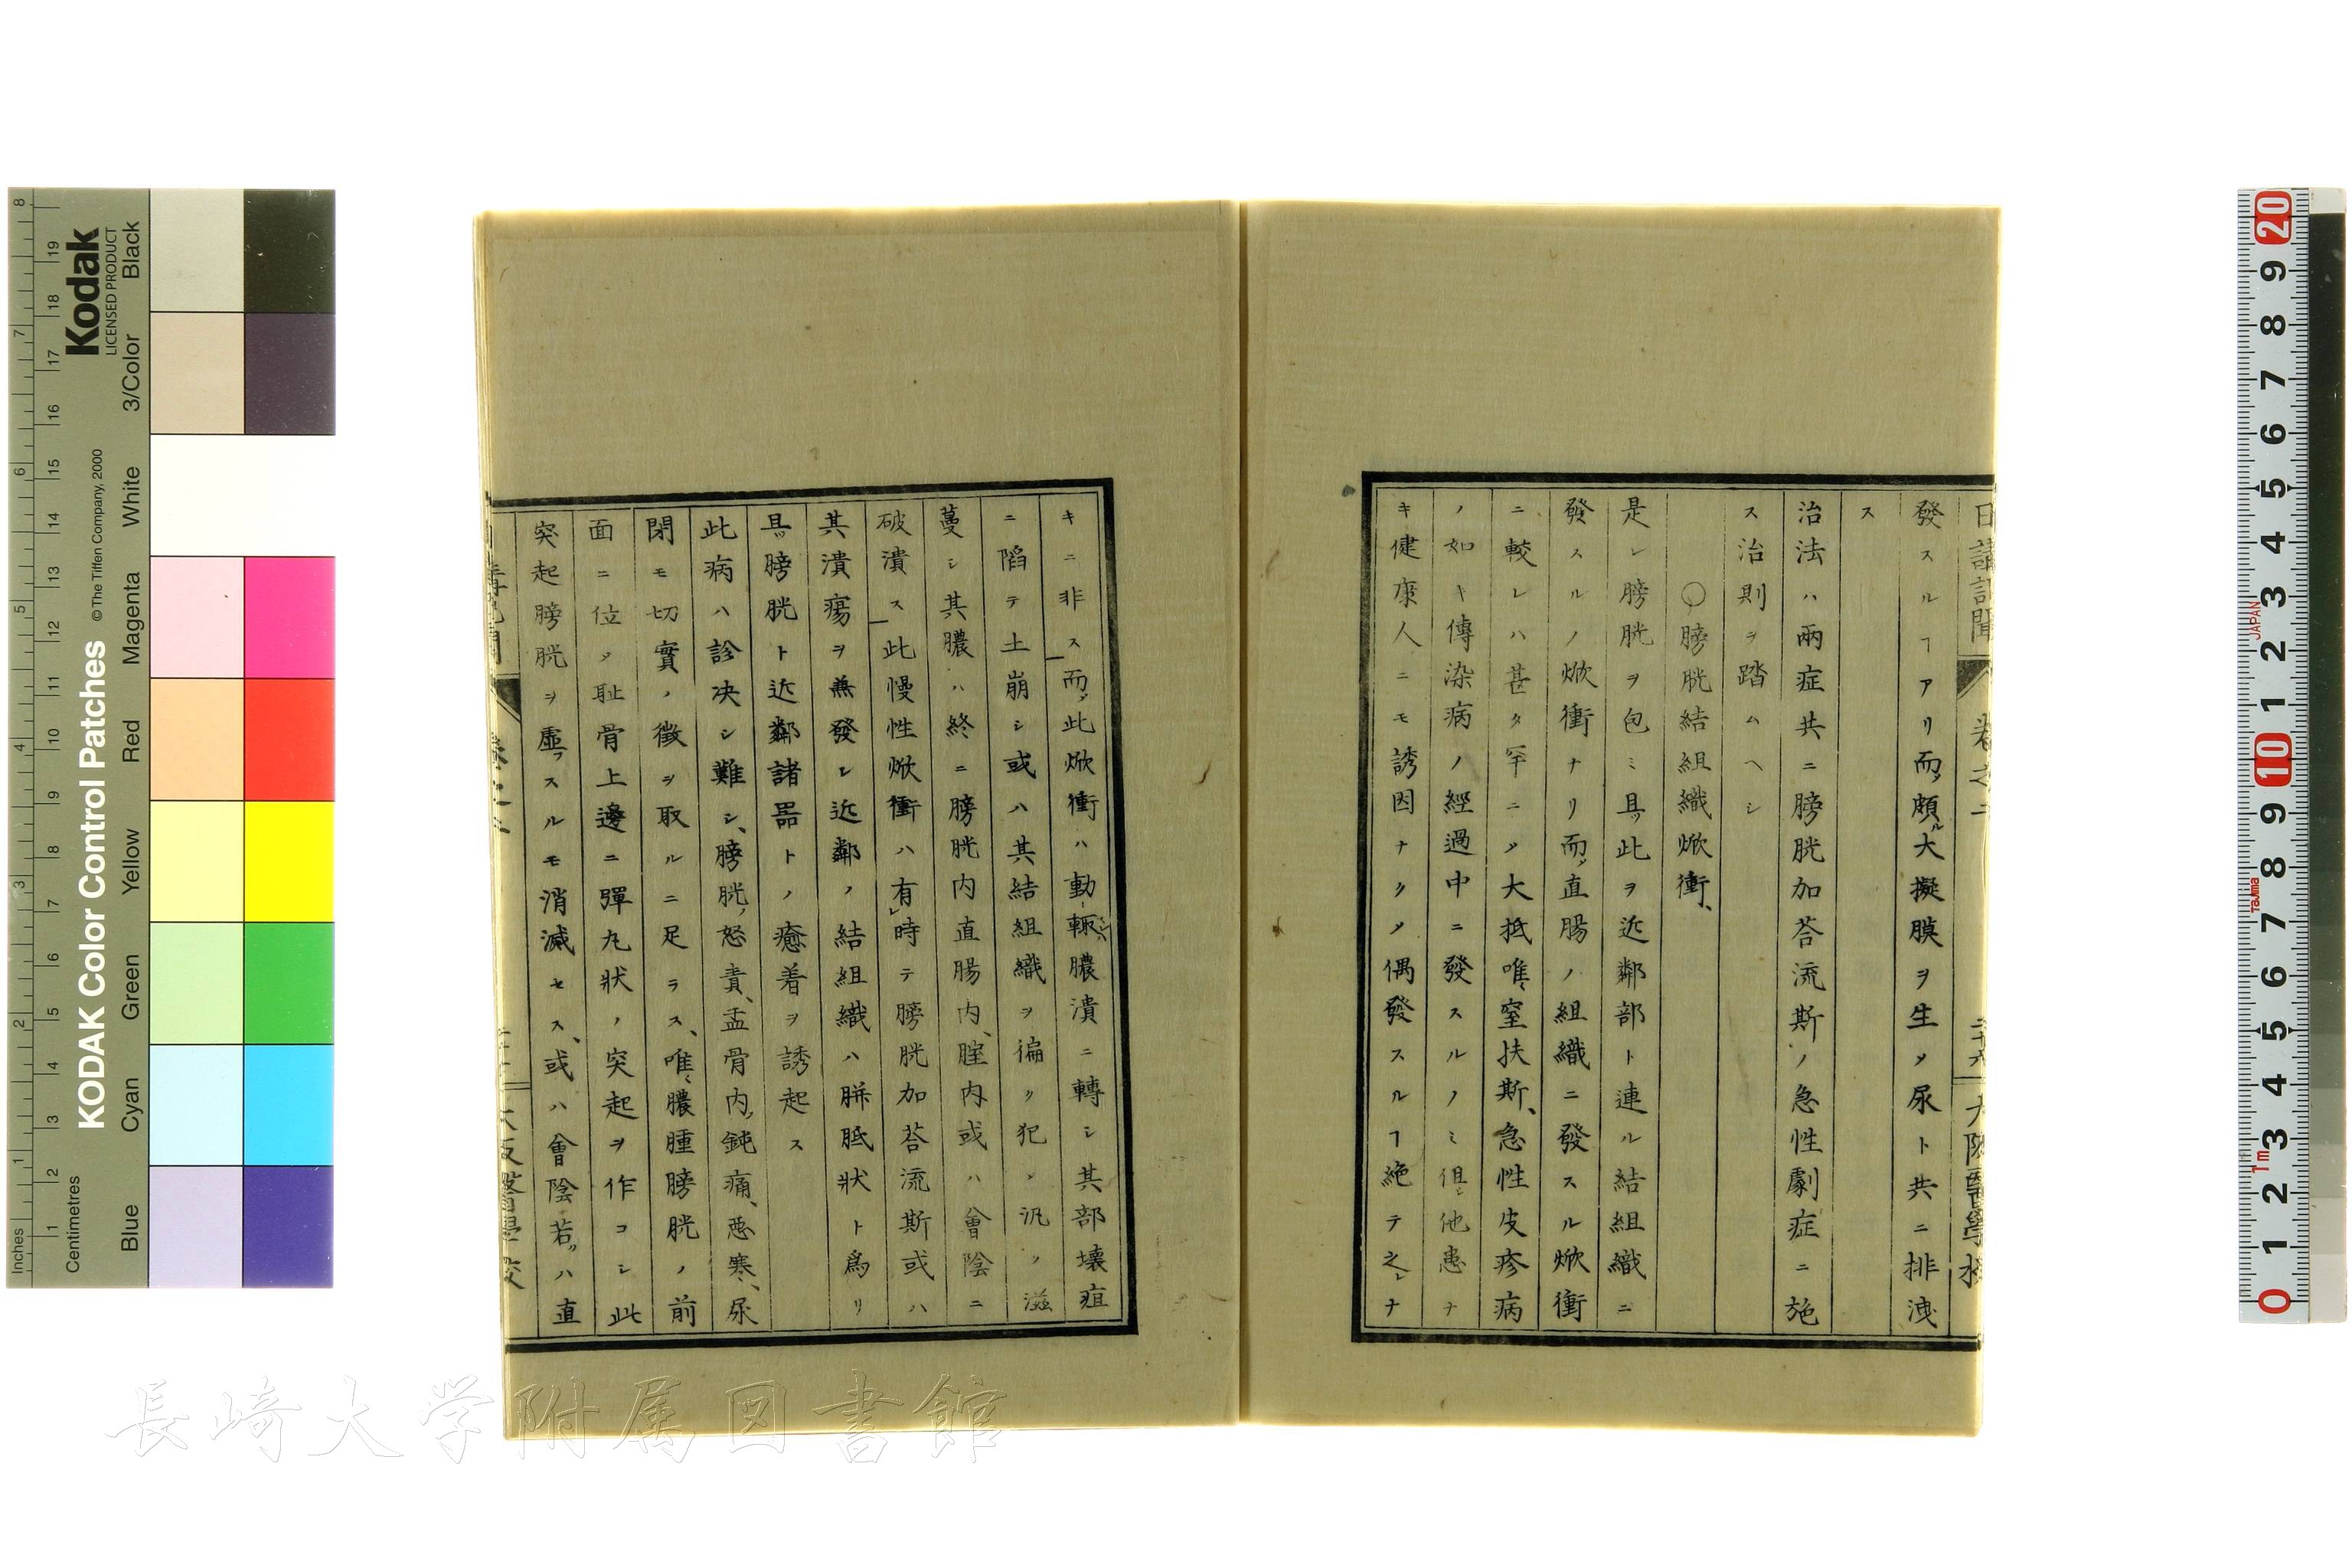 日講記聞 卷之二 二十六 大阪醫學校
發スルヿアリ而ノ頗ル大擬膜ヲ生メ尿ト共ニ排洩
ス
治法ハ兩症共ニ膀胱加荅流斯ノ急性劇症ニ施
ス治則ヲ踏ムヘシ
○膀胱結組織焮衝、
是レ膀胱ヲ包ミ且ツ此ヲ近鄰部ト連ル結組織ニ
發スルノ焮衝ナリ而ノ直腸ノ組織ニ發スル焮衝
ニ較レハ甚タ罕ニメ大抵唯〻窒扶斯、急性皮疹病
ノ如キ傳染病ノ經過中ニ發スルノミ但シ他患ナ
キ健康人ニモ誘因ナクメ偶發スルヿ絶テ之レナ
キニ非ス而ノ此焮衝ハ動モ輙スレハ膿潰ニ轉シ其部壞疽
ニ陷テ土崩シ或ハ其結組織ヲ徧ク犯シ汎ク滋
蔓シ其膿ハ終ニ膀胱内直腸内、腟内或ハ會陰ニ
破潰ス此慢性焮衝ハ有レ時テ膀胱加荅流斯或ハ
其潰瘍ヲ兼發シ近鄰ノ結組織ハ胼胝状ト爲リ
且ツ膀胱ト近鄰諸器トノ癒着ヲ誘起ス
此病ハ診决シ難シ、膀胱ノ怒責、盂骨内ノ鈍痛、惡寒、尿
閉モ切實ノ徴ヲ取ルニ足ラス、唯〻膿腫膀胱ノ前
面ニ位メ耻骨上邊ニ彈丸状ノ突起ヲ作コシ此
突起膀胱ヲ虚フスルモ消滅セス、或ハ會陰若クハ直
Kodak
LICENSED PRODUCT
KODAK Color Control Patches
© The Tiffen Company, 2000
Inches
Centimetres
Blue Cyan Green Yellow Red Magenta White 3/Color Black
JAPAN
Tajima
1m
長崎大学附属図書館